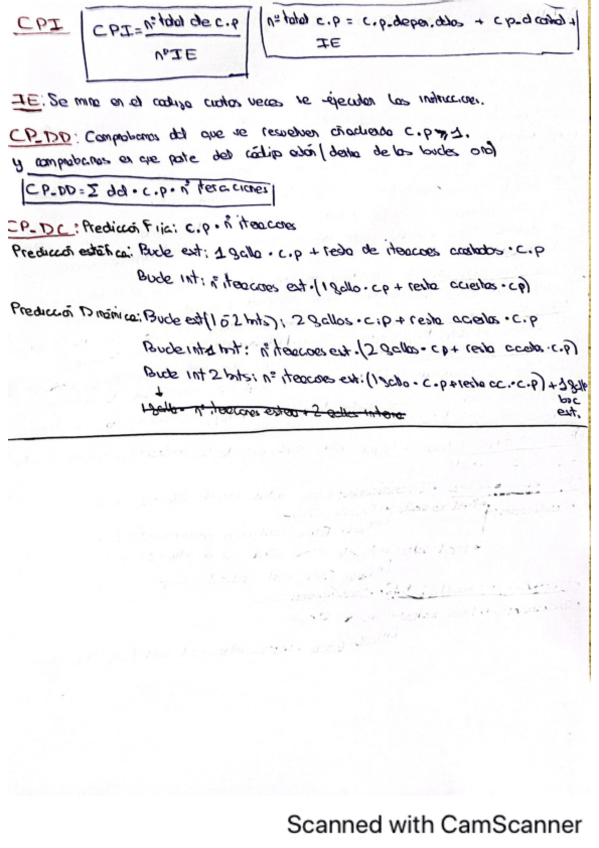 CPI
CPI = nº total de c.p / nº IE
nº total c.p = c.p_depen.datos + c.p_d control +
IE
IE: Se mira en el codigo cuantas veces se ejecutan las instrucciones.
CP_DD: Comprobamos dd que se resuelven añadiendo c.p ≥ 1.
y comprobamos en que parte del código están (dentro de los bucles o no)
CP_DD = Σ dd · c.p · nº iteraciones
CP_DC: Predicción Fija: c.p · nº iteraciones
Predicción estática: Bucle ext: 1 fallo · c.p + resto de iteraciones acertados · c.p
Bucle int: nº iteraciones ext · (1 fallo · cp + resto aciertos · cp)
Predicción Dinámica: Bucle ext (1 ó 2 bits): 2 fallos · c.p + resto aciertos · c.p
Bucle int 1 bit: nº iteraciones ext · (2 fallos · cp + resto aciertos · c.p)
Bucle int 2 bits: nº iteraciones ext: (1 fallo · c.p + resto ac. · c.p) + 1 fallo
buc
ext.
1 fallo · nº iteraciones + 2 fallos
Scanned with CamScanner